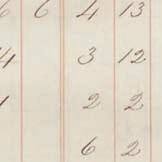 6 6 4 13
4 3 12
1 2 2
6 2